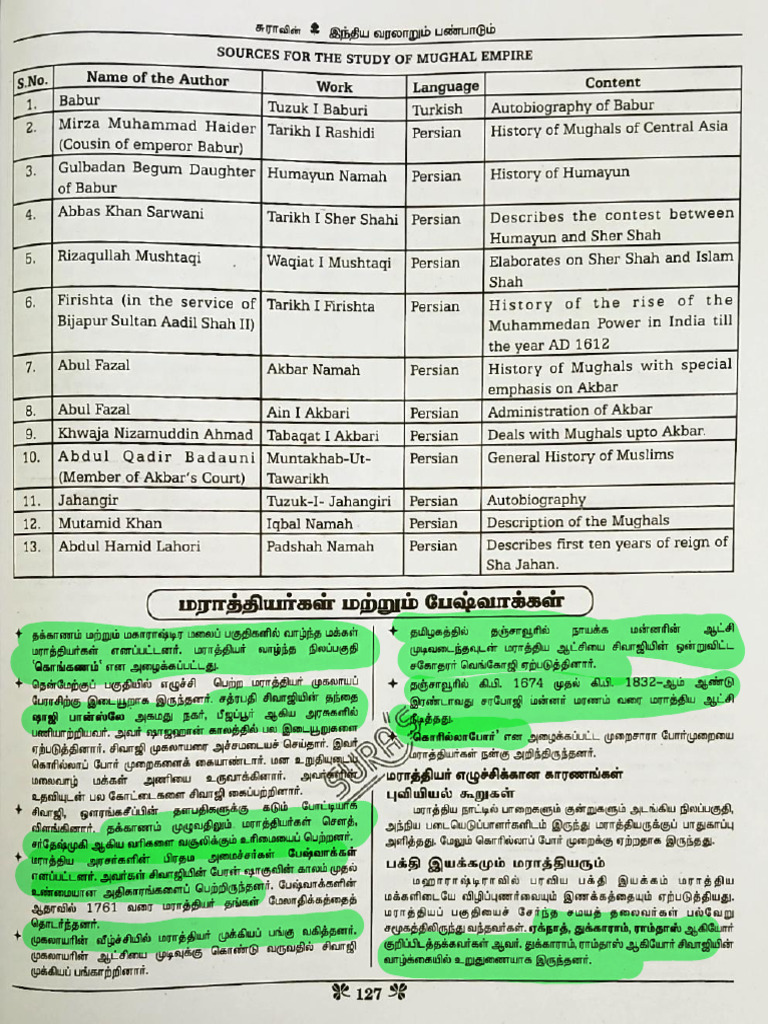 சுராவின் இந்திய வரலாறும் பண்பாடும்
SOURCES FOR THE STUDY OF MUGHAL EMPIRE
S.No. Name of the Author Work Language Content
1. Babur Tuzuk I Baburi Turkish Autobiography of Babur
2. Mirza Muhammad Haider Tarikh I Rashidi Persian History of Mughals of Central Asia
(Cousin of emperor Babur)
3. Gulbadan Begum Daughter Humayun Namah Persian History of Humayun
of Babur
4. Abbas Khan Sarwani Tarikh I Sher Shahi Persian Describes the contest between
Humayun and Sher Shah
5. Rizaqullah Mushtaqi Waqiat I Mushtaqi Persian Elaborates on Sher Shah and Islam
Shah
6. Firishta (in the service of Tarikh I Firishta Persian History of the rise of the
Bijapur Sultan Aadil Shah II) Muhammedan Power in India till
the year AD 1612
7. Abul Fazal Akbar Namah Persian History of Mughals with special
emphasis on Akbar
8. Abul Fazal Ain I Akbari Persian Administration of Akbar
9. Khwaja Nizamuddin Ahmad Tabaqat I Akbari Persian Deals with Mughals upto Akbar.
10. Abdul Qadir Badauni Muntakhab-Ut- Persian General History of Muslims
(Member of Akbar's Court) Tawarikh
11. Jahangir Tuzuk-I- Jahangiri Persian Autobiography
12. Mutamid Khan Iqbal Namah Persian Description of the Mughals
13. Abdul Hamid Lahori Padshah Namah Persian Describes first ten years of reign of
Sha Jahan.
மராத்தியர்கள் மற்றும் பேஷ்வாக்கள்
தக்காணம் மற்றும் மகாராஷ்டிர மலைப் பகுதிகளில் வாழ்ந்த மக்கள்
மராத்தியர்கள் எனப்பட்டனர். மராத்தியர் வாழ்ந்த நிலப்பகுதி
'கொங்கணம்' என அழைக்கப்பட்டது.
தென்மேற்குப் பகுதியில் எழுச்சி பெற்ற மராத்தியர் முகலாயப்
பேராசிற்கு இடையூறாக இருந்தனர். சத்ரபதி சிவாஜியின் தந்தை
ஷாஜி பான்ஸ்லே அகமது நகர், பீஜப்பூர் ஆகிய அரசுகளில்
பணியாற்றியவர். அவர் ஷாஜஹான் காலத்தில் பல இடையூறுகளை
ஏற்படுத்தினார். சிவாஜி முகலாயரை அச்சமடையச் செய்தார். இவர்
கொரில்லாப் போர் முறைகளைக் கையாண்டார். மன உறுதியுடைய
மலைவாழ் மக்கள் அணியை உருவாக்கினார். அவர்களின்
உதவியுடன் பல கோட்டைகளை சிவாஜி கைப்பற்றினார்.
சிவாஜி, ஔரங்கசீப்பின் தளபதிகளுக்கு கடும் போட்டியாக
விளங்கினார். தக்காணம் முழுவதிலும் மராத்தியர்கள் சௌத்,
சர்தேஷ்முகி ஆகிய வரிகளை வசூலிக்கும் உரிமையைப் பெற்றனர்.
மராத்திய அரசர்களின் பிரதம அமைச்சர்கள் பேஷ்வாக்கள்
எனப்பட்டனர். அவர்கள் சிவாஜியின் பேரன் ஷாகுவின் காலம் முதல்
உண்மையான அதிகாரங்களைப் பெற்றிருந்தனர். பேஷ்வாக்களின்
ஆதரவில் 1761 வரை மராத்தியர் தங்கள் மேலாதிக்கத்தைத்
தொடர்ந்தனர்.
முகலாயரின் வீழ்ச்சியில் மராத்தியர் முக்கியப் பங்கு வகித்தனர்.
முகலாயரின் ஆட்சியை முடிவுக்கு கொண்டு வருவதில் சிவாஜி
முக்கியப் பங்காற்றினார்.
தமிழகத்தில் தஞ்சாவூரில் நாயக்க மன்னரின் ஆட்சி
முடிவடைந்தவுடன் மராத்திய ஆட்சியை சிவாஜியின் ஒன்றுவிட்ட
சகோதரர் வெங்கோஜி ஏற்படுத்தினார்.
தஞ்சாவூரில் கி.பி. 1674 முதல் கி.பி. 1832-ஆம் ஆண்டு
இரண்டாவது சரபோஜி மன்னர் மரணம் வரை மராத்திய ஆட்சி
நீடித்தது.
'கொரில்லாபோர்' என அழைக்கப்பட்ட முறைசாரா போர்முறையை
மராத்தியர்கள் நன்கு அறிந்திருந்தனர்.
மராத்தியர் எழுச்சிக்கான காரணங்கள்
புவியியல் கூறுகள்
மராத்திய நாட்டில் பாறைகளும் குன்றுகளும் அடங்கிய நிலப்பகுதி,
அந்நிய படையெடுப்பாளர்களிடம் இருந்து மராத்தியருக்குப் பாதுகாப்பு
அளித்தது. மேலும் கொரில்லாப் போர் முறைக்கு ஏற்றதாக இருந்தது.
பக்தி இயக்கமும் மராத்தியரும்
மஹாராஷ்டிராவில் பரவிய பக்தி இயக்கம் மராத்திய
மக்களிடையே விழிப்புணர்வையும் இணக்கத்தையும் ஏற்படுத்தியது.
மராத்தியப் பகுதியைச் சேர்ந்த சமயத் தலைவர்கள் பல்வேறு
சமூகத்திலிருந்து வந்தவர்கள். ஏக்நாத், துக்காராம், ராம்தாஸ் ஆகியோர்
குறிப்பிடத்தக்கவர்கள் ஆவர். துக்காராம், ராம்தாஸ் ஆகியோர் சிவாஜியின்
வாழ்க்கையில் உறுதுணையாக இருந்தனர்.
SURA'S
127